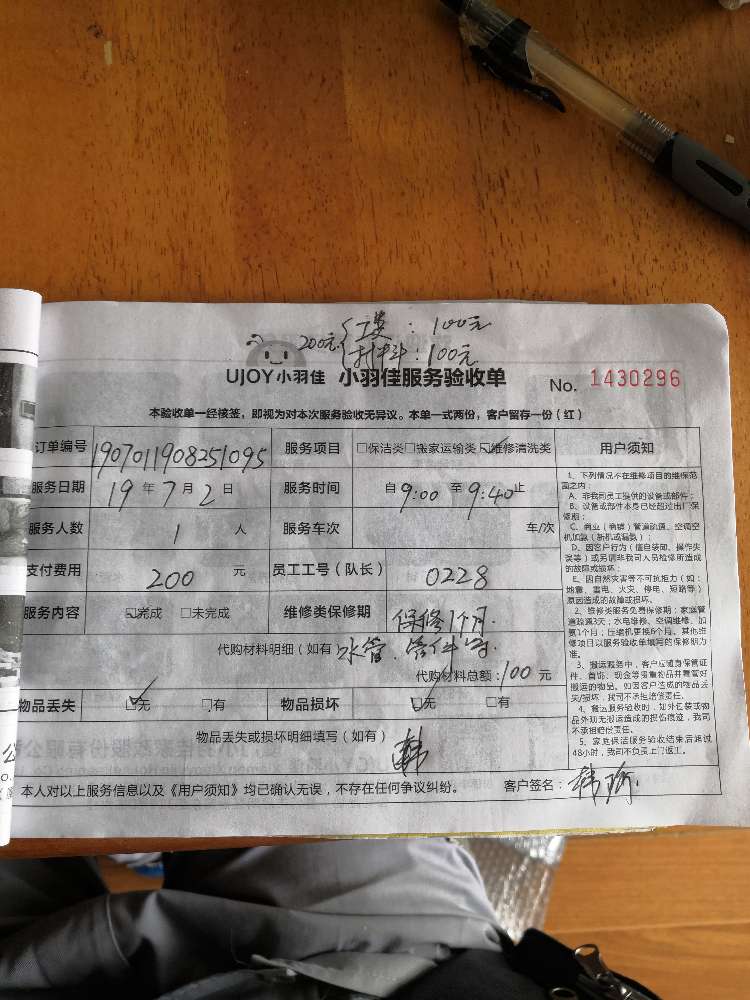 200元 { 工费：100元
材料：100元
UJOY小羽佳 小羽佳服务验收单 No. 1430296
本验收单一经核签，即视为对本次服务验收无异议。本单一式两份，客户留存一份（红）
订单编号 1907011908251095 服务项目 □保洁类□搬家运输类☑维修清洗类 用户须知
服务日期 19年7月2日 服务时间 自9:00至9:40止
服务人数 1人 服务车次 车/次
支付费用 200元 员工工号（队长） 0228
服务内容 ☑完成 □未完成 维修类保修期 保修1个月
代购材料明细（如有 水管、管件等
代购材料总额：100元
物品丢失 ☑无 □有 物品损坏 ☑无 □有
物品丢失或损坏明细填写（如有） 韩
本人对以上服务信息以及《用户须知》均已确认无误，不存在任何争议纠纷。 客户签名：韩
1、下列情况不在维修项目的维保范
围之内：
A、非我司员工提供的设备或部件；
B、设备或部件本身已经超过出厂保
修期；
C、商业（商铺）管道疏通、空调空
机加氟（新机或漏氟）；
D、因客户行为（擅自装卸、操作失
误等）或另请非我司人员检修所造成
的故障或损坏；
E、因自然灾害等不可抗拒力（如：
地震、雷电、火灾、停电、短路等）
原因造成的故障或损坏。
2、维修类服务免费保修期：家庭管
道疏通3天；水电维修、空调维修、加
氟1个月；压缩机更换6个月。其他维
修项目以服务验收单填写的保修期为
准。
3、搬运服务中，客户应随身保管证
件、首饰、现金等贵重物品并看管好
搬运的物品。如因客户造成的物品丢
失/损坏，我司不承担赔偿责任。
4、搬运服务验收时，如外包装或物
品外观无搬运造成的损伤痕迹，我司
不承担赔偿责任。
5、家庭保洁服务验收结束后超过
48小时，我司不负责上门返工。